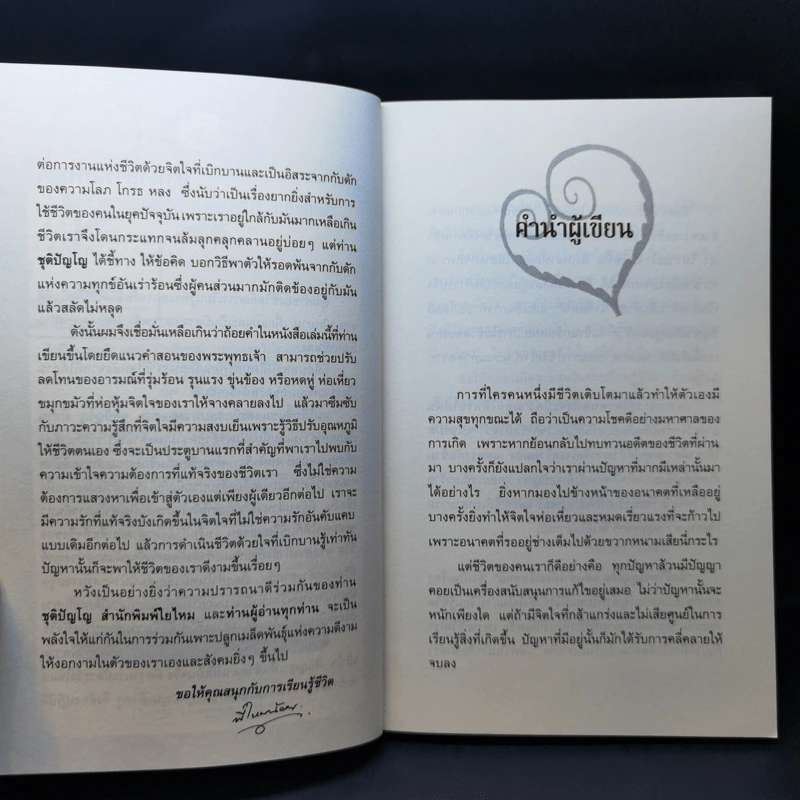 ต่อการงานแห่งชีวิตด้วยจิตใจที่เบิกบานและเป็นอิสระจากกับดัก
ของความโลภ โกรธ หลง ซึ่งนับว่าเป็นเรื่องยากยิ่งสำหรับการ
ใช้ชีวิตของคนในยุคปัจจุบัน เพราะเราอยู่ใกล้กับมันมากเหลือเกิน
ชีวิตเราจึงโดนกระแทกจนล้มลุกคลุกคลานอยู่บ่อยๆ แต่ท่าน
ชุติปัญโญ ได้ชี้ทาง ให้ข้อคิด บอกวิธีพาตัวให้รอดพ้นจากกับดัก
แห่งความทุกข์อันเร่าร้อนซึ่งผู้คนส่วนมากมักติดข้องอยู่กับมัน
แล้วสลัดไม่หลุด
ดังนั้นผมจึงเชื่อมั่นเหลือเกินว่าถ้อยคำในหนังสือเล่มนี้ที่ท่าน
เขียนขึ้นโดยยึดแนวคำสอนของพระพุทธเจ้า สามารถช่วยปรับ
ลดโทนของอารมณ์ที่รุ่มร้อน รุนแรง ขุ่นข้อง หรือหดหู่ ห่อเหี่ยว
ขมุกขมัวที่ห่อหุ้มจิตใจของเราให้จางคลายลงไป แล้วมาซึมซับ
กับภาวะความรู้สึกที่จิตใจมีความสงบเย็นเพราะรู้วิธีปรับอุณหภูมิ
ให้ชีวิตตนเอง ซึ่งจะเป็นประตูบานแรกที่สำคัญที่พาเราไปพบกับ
ความเข้าใจความต้องการที่แท้จริงของชีวิตเรา ซึ่งไม่ใช่ความ
ต้องการแสวงหาเพื่อเข้าสู่ตัวเองแต่เพียงผู้เดียวอีกต่อไป เราจะ
มีความรักที่แท้จริงบังเกิดขึ้นในจิตใจที่ไม่ใช่ความรักอันคับแคบ
แบบเดิมอีกต่อไป แล้วการดำเนินชีวิตด้วยใจที่เบิกบานรู้เท่าทัน
ปัญหานั้นก็จะพาให้ชีวิตของเราดีงามขึ้นเรื่อยๆ
หวังเป็นอย่างยิ่งว่าความปรารถนาดีร่วมกันของท่าน
ชุติปัญโญ สำนักพิมพ์ใยไหม และท่านผู้อ่านทุกท่าน จะเป็น
พลังใจให้แก่กันในการร่วมกันเพาะปลูกเมล็ดพันธุ์แห่งความดีงาม
ให้งอกงามในตัวของเราเองและสังคมยิ่งๆ ขึ้นไป
ขอให้คุณสนุกกับการเรียนรู้ชีวิต
คำนำผู้เขียน
การที่ใครคนหนึ่งมีชีวิตเติบโตมาแล้วทำให้ตัวเองมี
ความสุขทุกขณะได้ ถือว่าเป็นความโชคดีอย่างมหาศาลของ
การเกิด เพราะหากย้อนกลับไปทบทวนอดีตของชีวิตที่ผ่าน
มา บางครั้งก็ยังแปลกใจว่าเราผ่านปัญหาที่มากมีเหล่านั้นมา
ได้อย่างไร ยิ่งหากมองไปข้างหน้าของอนาคตที่เหลืออยู่
บางครั้งยิ่งทำให้จิตใจห่อเหี่ยวและหมดเรี่ยวแรงที่จะก้าวไป
เพราะอนาคตที่รออยู่ช่างเต็มไปด้วยขวากหนามเสียนี่กระไร
แต่ชีวิตของคนเราก็ดีอย่างคือ ทุกปัญหาล้วนมีปัญญา
คอยเป็นเครื่องสนับสนุนการแก้ไขอยู่เสมอ ไม่ว่าปัญหานั้นจะ
หนักเพียงใด แต่ถ้ามีจิตใจที่กล้าแกร่งและไม่เสียศูนย์ในการ
เรียนรู้สิ่งที่เกิดขึ้น ปัญหาที่มีอยู่นั้นก็มักได้รับการคลี่คลายให้
จบลง